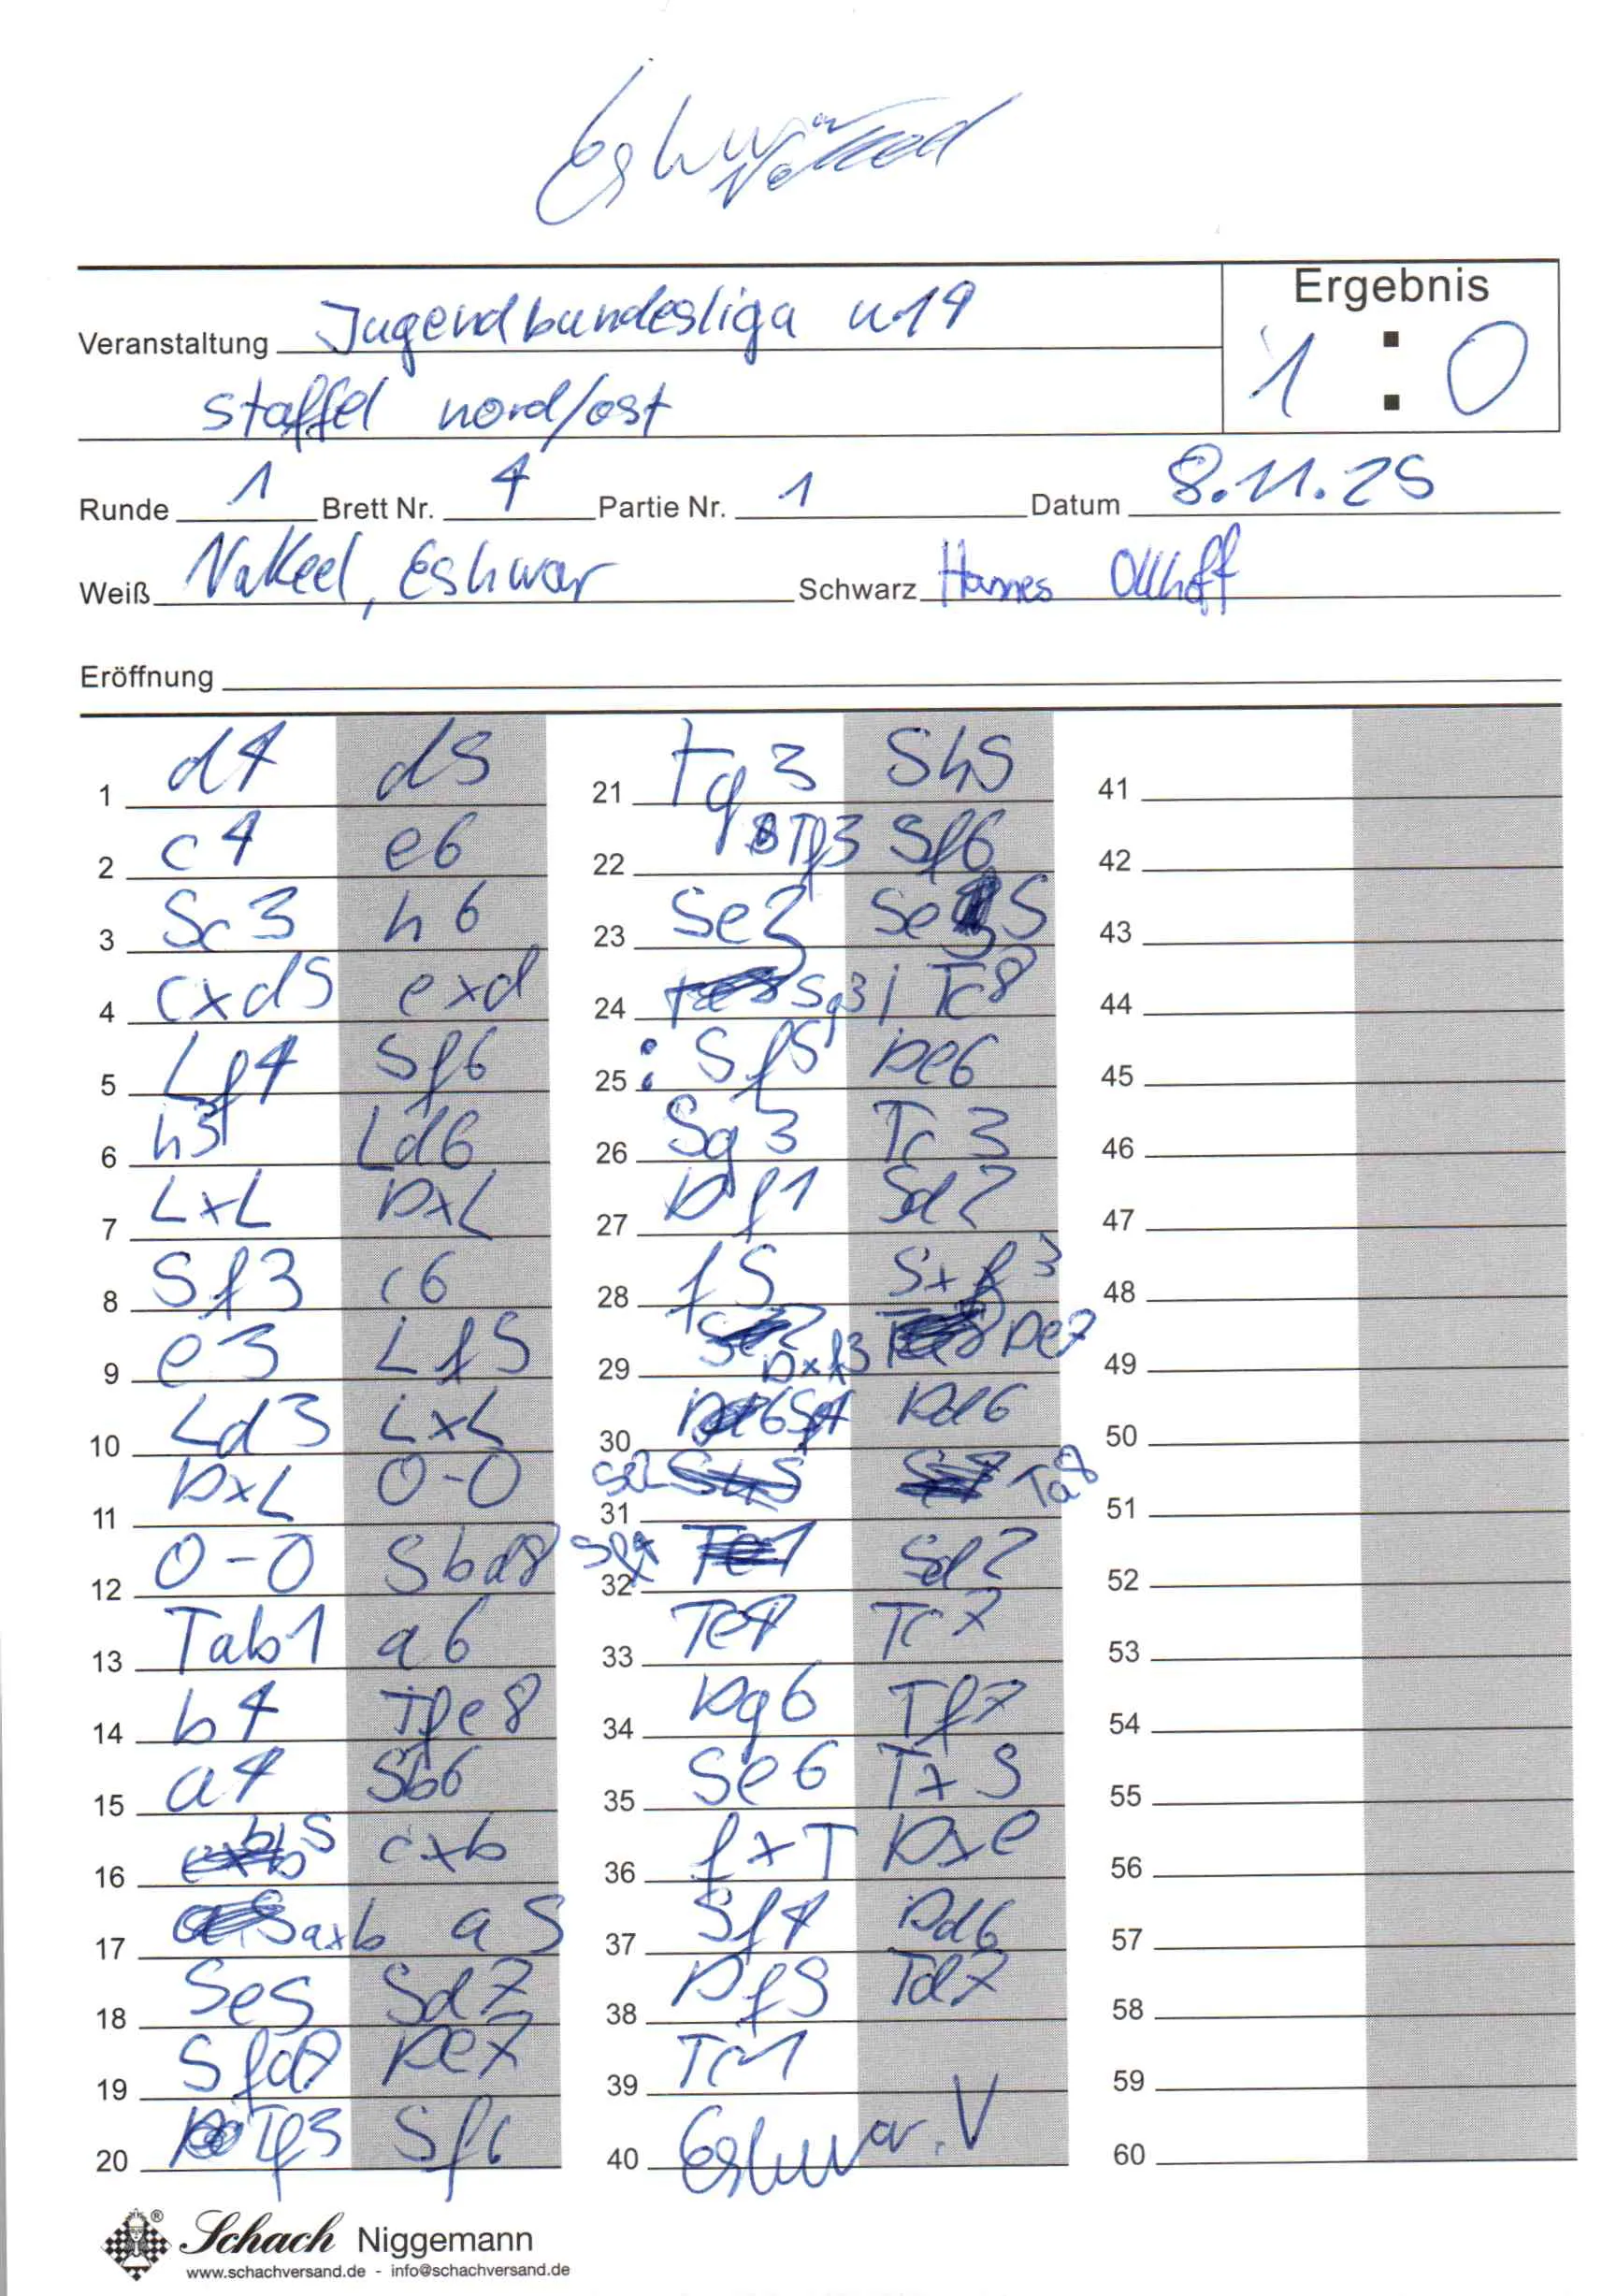 Ergebnis
Veranstaltung Jugendbundesliga u19
1 : 0
Staffel nord/ost
Runde 1 Brett Nr. 4 Partie Nr. 1 Datum 8.11.25
Weiß Nakeel, Eshwar Schwarz Hannes
Eröffnung
1 d4 d5
2 c4 e6
3 Sc3 h6
4 cxd5 exd
5 Lf4 Sf6
6 h3 Ld6
7 LxL DxL
8 Sf3 c6
9 e3 Lf5
10 Ld3 LxL
11 DxL 0-0
12 0-0 Sbd8
13 Tab1 a6
14 b4 Tfe8
15 a4 Sb6
16 b5 cxb
17 axb a5
18 Se5 Sd7
19 De7
20 Tf3 Sf6
21 Tg3 Sh5
22 Tf3 Sf6
23 Se2 Se5
24 Sg3 Tc8
25 Sf5 De6
26 Sg3 Tc3
27 Df1 Sd2
28 f5 Sxf3
29 Dxf3 De7
30 Sg4 Dd6
31 Se2 Ta8
32 Sf4 Sd2
33 Te1 Tc7
34 Dg6 Tf7
35 Se6 TxS
36 fxT Dxe
37 Sf4 Dd6
38 Df5 Td7
39 Tc1
40 Eshwar.V
41
42
43
44
45
46
47
48
49
50
51
52
53
54
55
56
57
58
59
60
Schach Niggemann
www.schachversand.de - info@schachversand.de